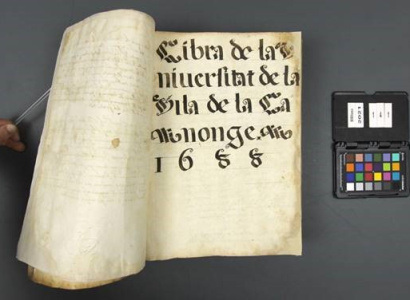 Libra de la V
niversitat de la
Vila de la Ca
nonge.
1688